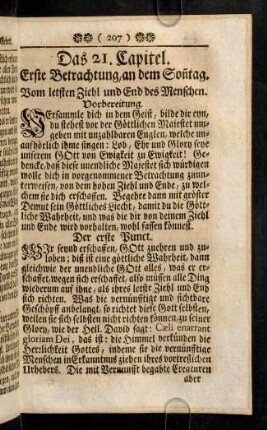 ( 207 )
Das 21. Capitel.
Erste Betrachtung, an dem Soñtag.
Vom letsten Ziehl und End des Menschen.
Vorbereitung.
VErsammle dich in dem Geist, bilde dir eyn,
du stehest vor der Göttlichen Majestet um-
geben mit unzahlbaren Englen, welche un-
aufhörlich ihme singen: Lob, Ehr und Glory seye
unserem GOtt von Ewigkeit zu Ewigkeit! Ge-
dencke, das diese unendliche Majestet sich würdigen
wolle dich in vorgenommener Betrachtung zu un-
terweisen, von dem hohen Ziehl und Ende, zu wel-
chem sie dich erschaffen. Begehre dann mit grosser
Demut sein Göttliches Liecht, damit du die Gött-
liche Wahrheit, und was die dir von deinem Ziehl
und Ende wird vorhalten, wohl fassen könnest.
Der erste Punct.
WIr seynd erschaffen, GOtt zuehren und zu-
loben; diß ist eine göttliche Wahrheit, dann
gleichwie der unendliche GOtt alles, was er er-
schaffet, wegen sich erschaffet, also müssen alle Ding
wiederum auf ihne, als ihres letste Ziehl und End
sich richten. Was die vernünftige und sichtbare
Geschöpf anbelangt, so richtet diese Gott selbsten,
weilen sie sich selbsten nicht richten können, zu seiner
Glory, wie der Heil. David sagt: Cæli enarrant
gloriam Dei, das ist: die Himmel verkünden die
Herrlichkeit Gottes, indeme sie die vernünftige
Menschen in Erkanntnus ziehen ihres vortreflichen
Urhebers. Die mit Vernunft begabte Creaturen
aber